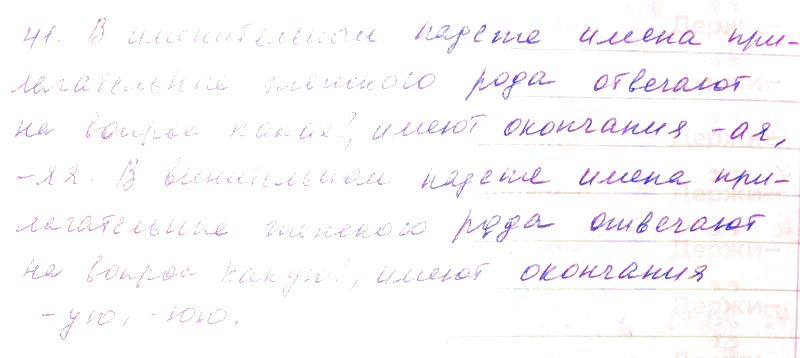 41. В именительном падеже имена при-
лагательные женского рода отвечают
на вопрос какая?, имеют окончания -ая,
-яя. В винительном падеже имена при-
лагательные женского рода отвечают
на вопрос какую?, имеют окончания
-ую, -юю.